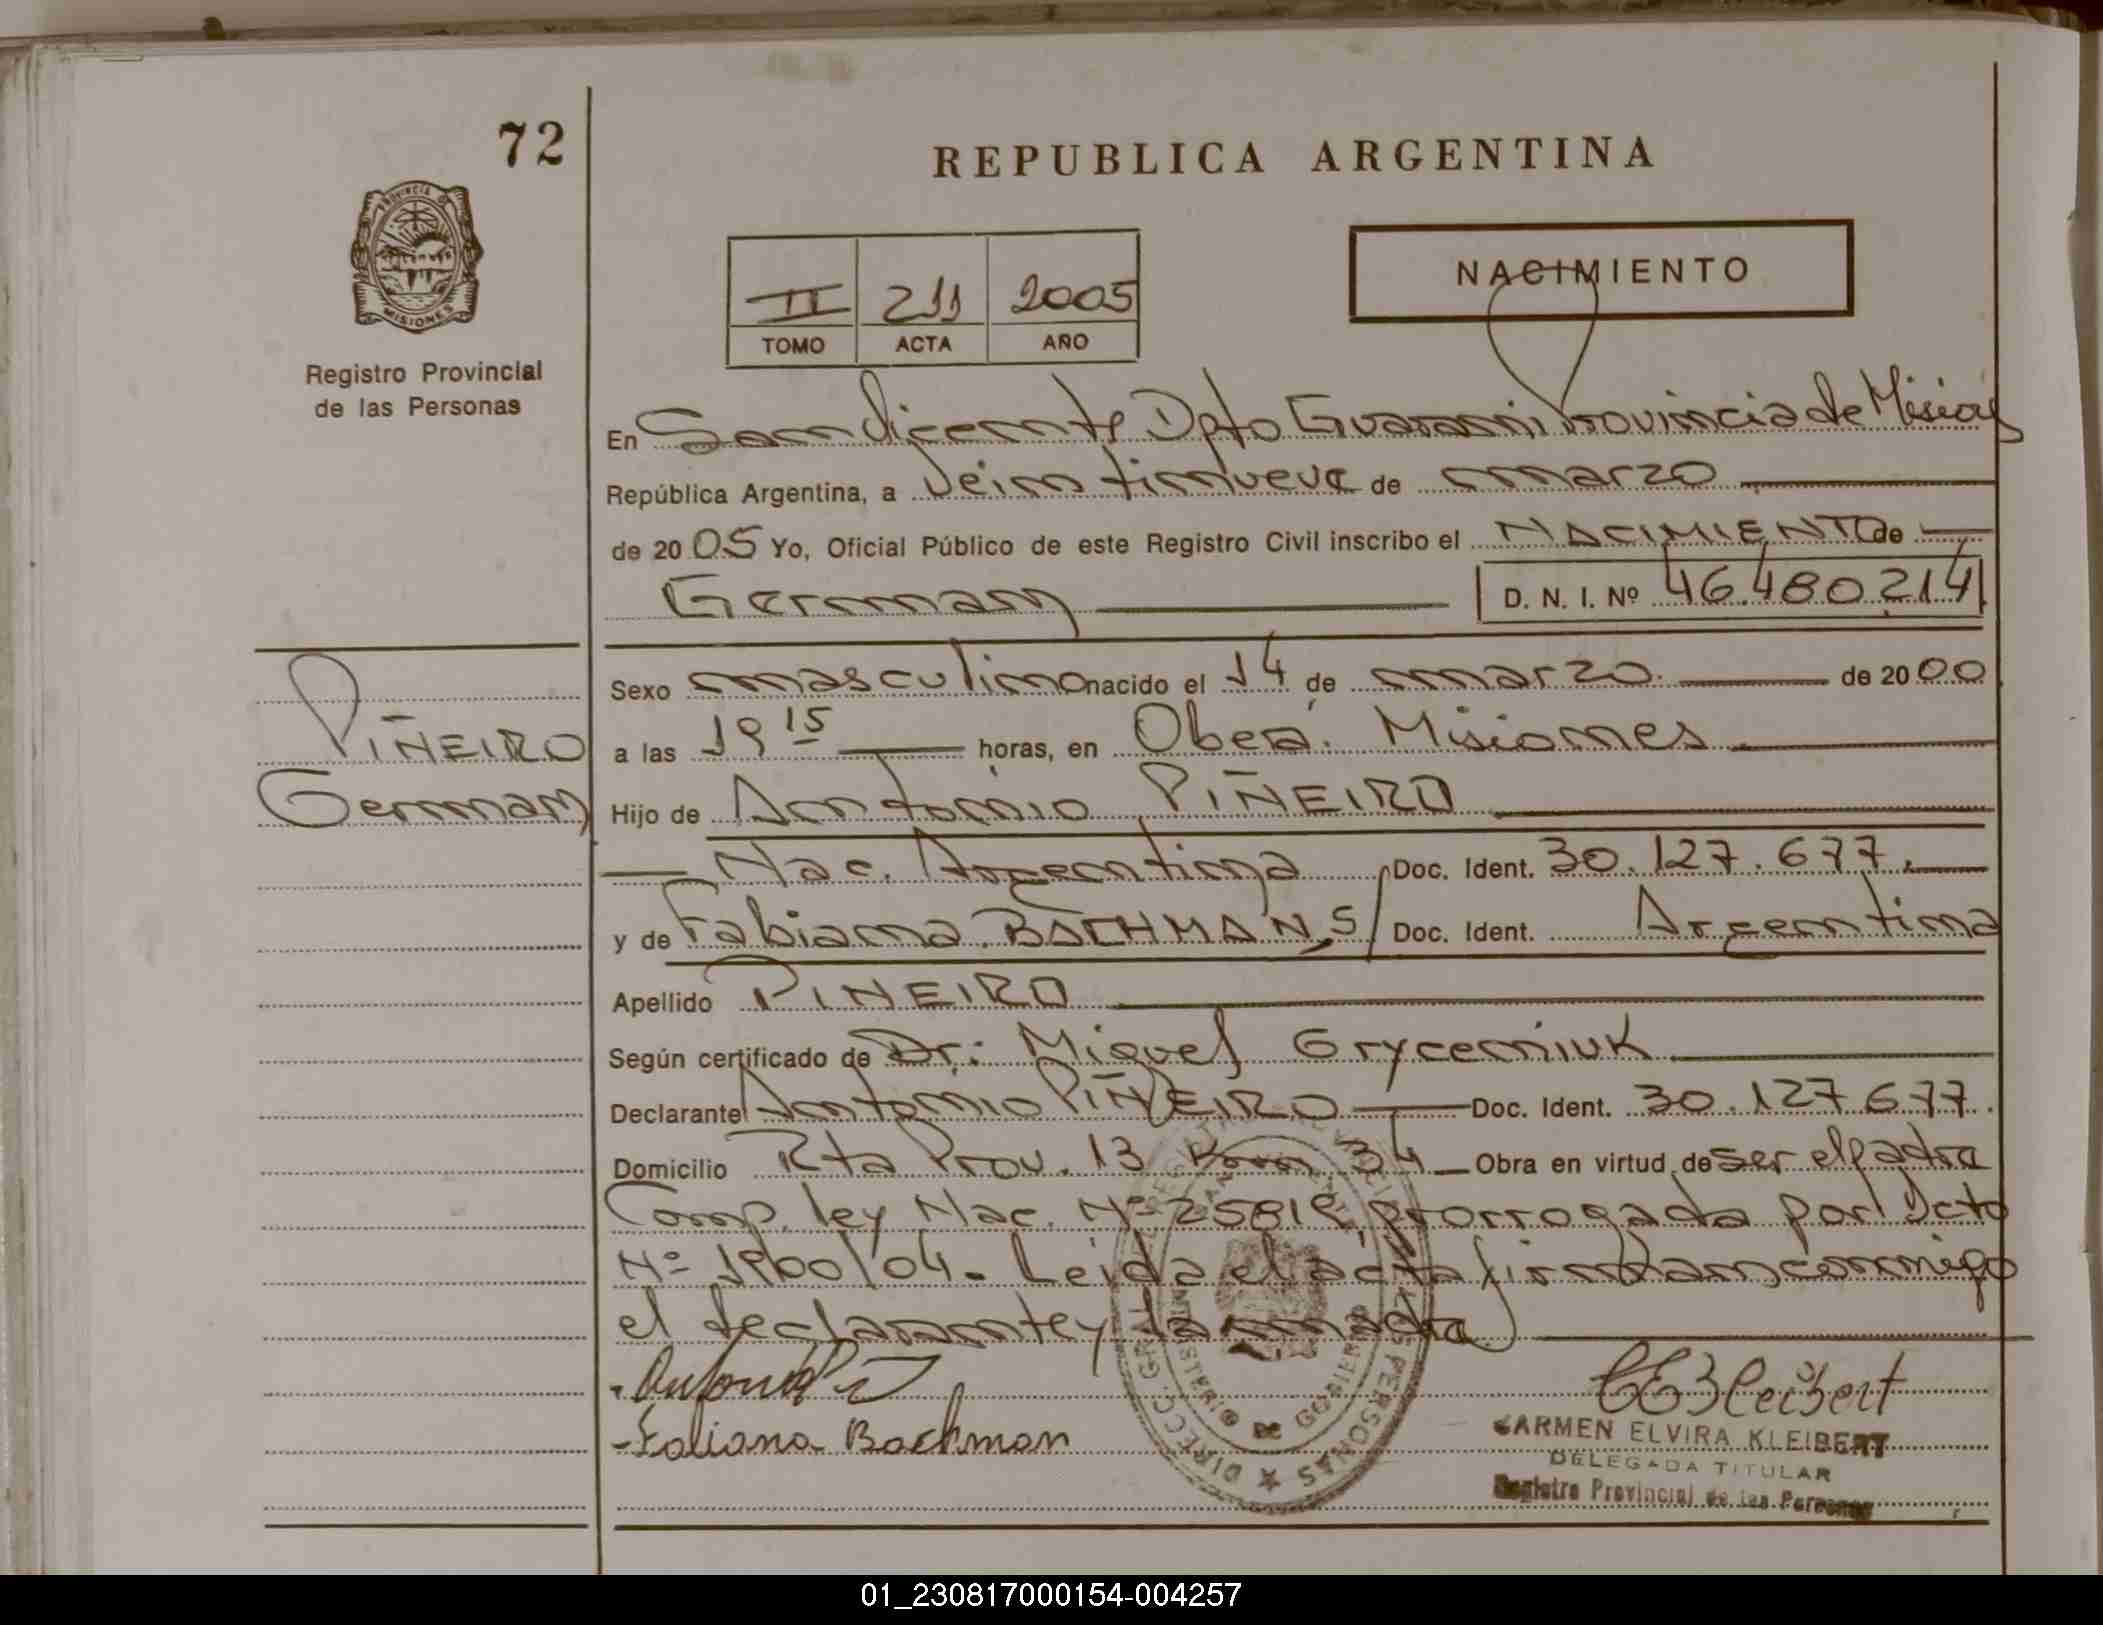 72
REPUBLICA ARGENTINA
PROVINCIA DE
MISIONES
Registro Provincial
de las Personas
II 211 2005
TOMO ACTA AÑO
NACIMIENTO
En San Vicente Dpto Guarani Provincia de Misiones
República Argentina, a Veintinueve de marzo
de 2005 Yo, Oficial Público de este Registro Civil inscribo el NACIMIENTO de
German D. N. I. Nº 46.480.214
PIÑEIRO
German
Sexo masculino nacido el 14 de marzo de 2000
a las 19 15 horas, en Oberá. Misiones
Hijo de Antonio PIÑEIRO
Nac. Argentina Doc. Ident. 30.127.677.
y de Fabiana BACHMAN, S/ Doc. Ident. Argentina
Apellido PIÑEIRO
Según certificado de Dr: Miguel Gryceniuk
Declarante Antonio PIÑEIRO Doc. Ident. 30.127.677.
Domicilio Rta Prov. 13 Km 34 Obra en virtud de ser el padre
Comp. ley Nac. Nº 25819 prorrogada por Dcto
Nº 1900/04. Leida el acta firman conmigo
el declarante y la madre
Fabiana Bachman
CARMEN ELVIRA KLEIBERT
DELEGADA TITULAR
Registro Provincial de las Personas
MINISTERIO DE GOBIERNO
01_230817000154-004257